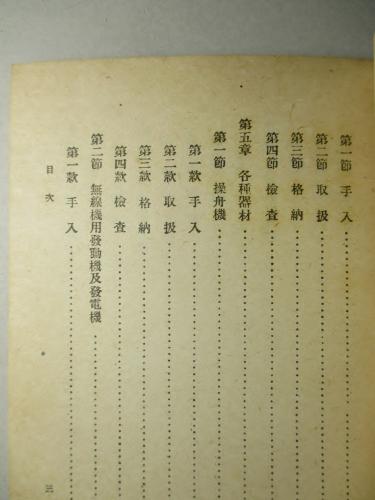 第一節 手入
第二節 取扱
第三節 格納
第四節 檢査
第五章 各種器材
第一節 操舟機
第一款 手入
第二款 取扱
第三款 格納
第四款 檢査
第二節 無線機用發動機及發電機
第一款 手入
目次
三